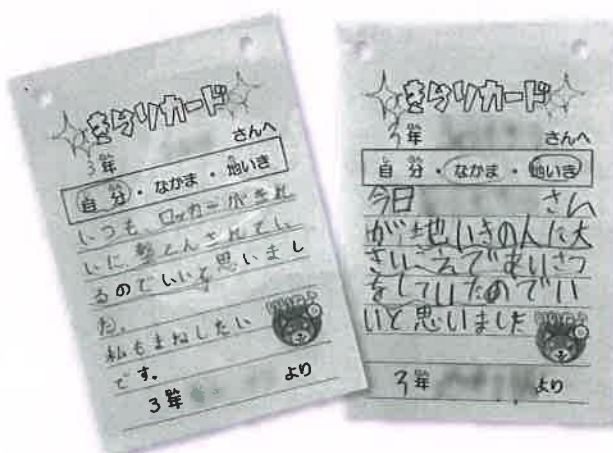 きらりカード
3年 さんへ
自分・なかま・地いき
いつも、ロッカーがきれ
いに整とんされてい
るのでいいと思いまし
た。
私もまねしたい
です。
3年 より
きらりカード
3年 さんへ
自分・なかま・地いき
今日 さん
が地いきの人に大
きいこえであいさつ
をしていたのでい
いと思いました
3年 より